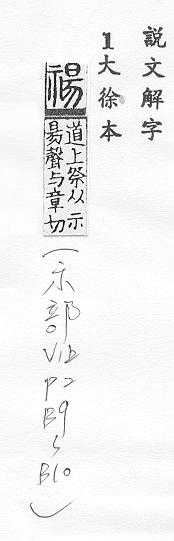 説文解字
1大徐本
禓
道上祭从示
昜聲与章切
(示部V1b
P2
B9
5
B10)